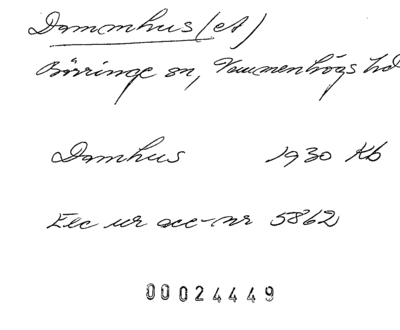 Dammhus (et)
Börringe sn, Vemmenhögs hd
Damhus 1930 Kb
Exc ur acc-nr 5862
00024449